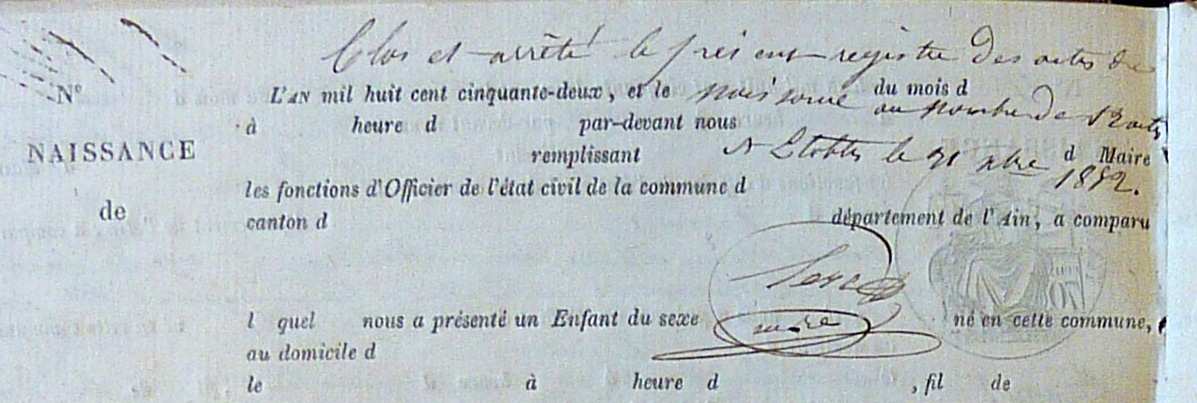 Clos et arrêté le présent registre des actes de
N° L'AN mil huit cent cinquante-deux, et le du mois d
naissance au nombre de
à heure d par-devant nous
NAISSANCE
remplissant d Maire
A le 31 xbre 1852.
les fonctions d'Officier de l'état civil de la commune d
de
canton d département de l'Ain, a comparu
l quel nous a présenté un Enfant du sexe né en cette commune,
maire
au domicile d
le à heure d , fil de